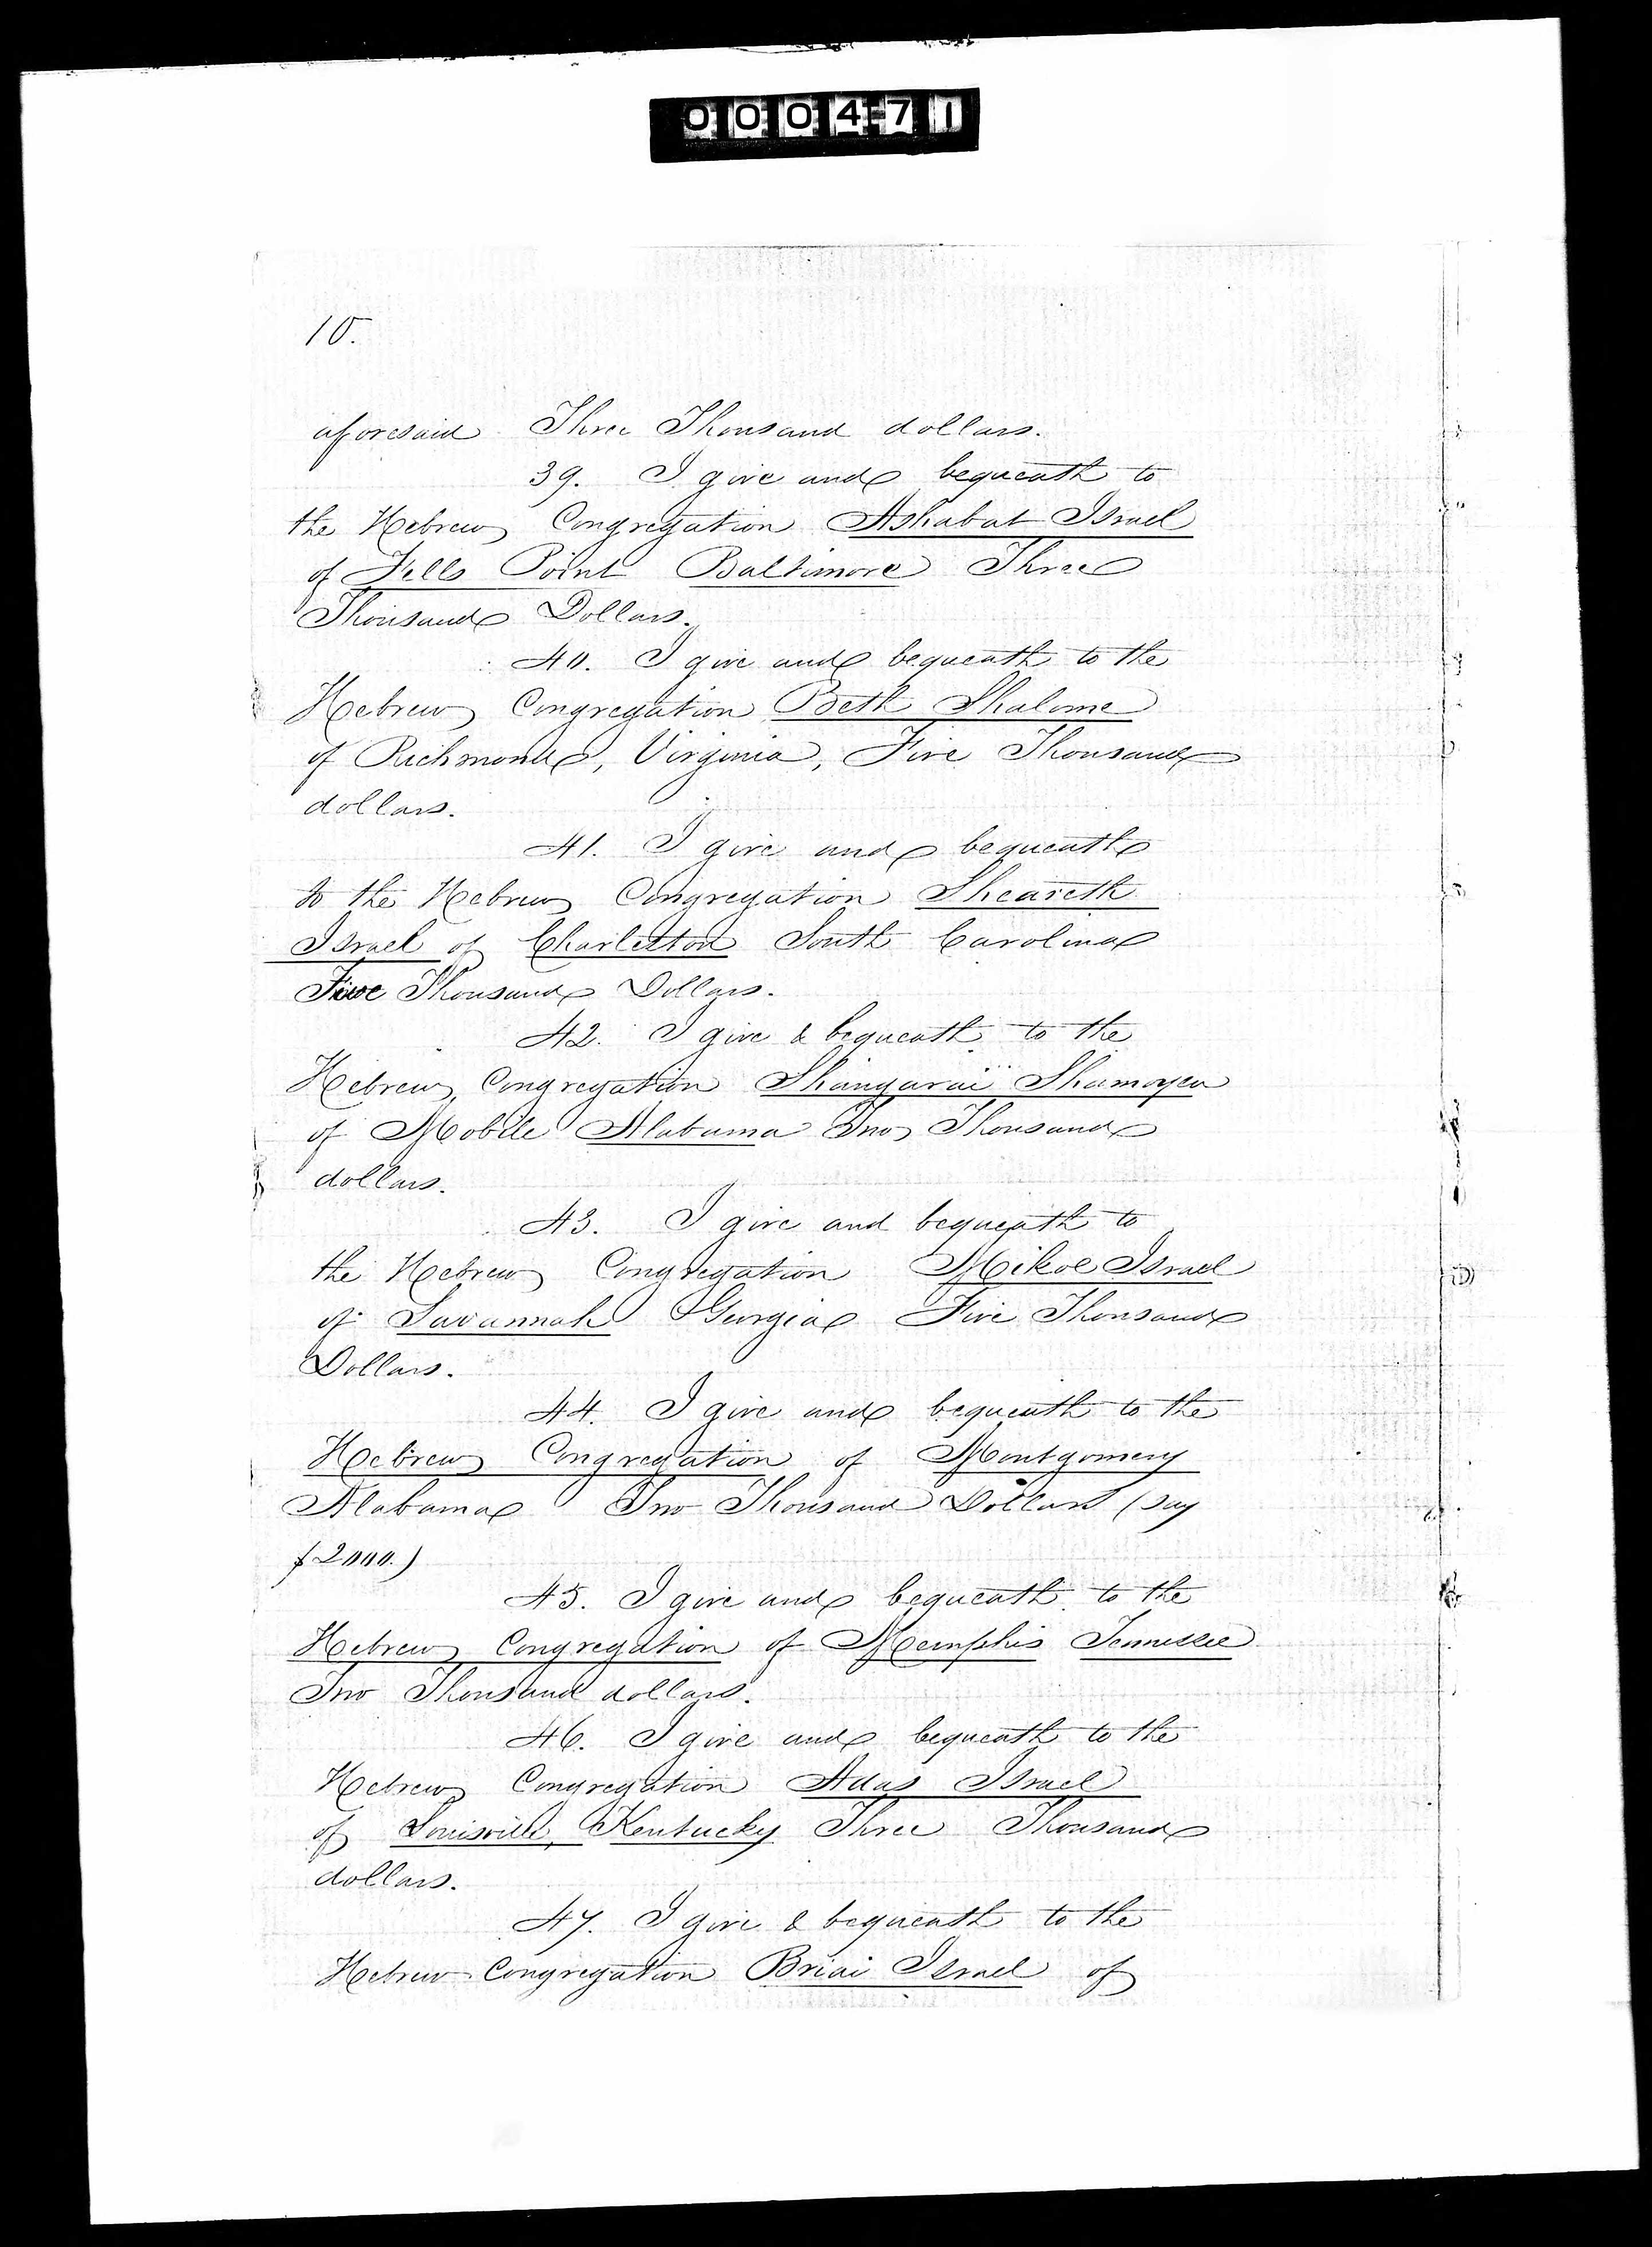 000471
10.
aforesaid Three Thousand dollars.
39. I give and bequeath to
the Hebrew Congregation Ashabat Israel
of Fells Point Baltimore Three
Thousand Dollars.
40. I give and bequeath to the
Hebrew Congregation Beth Shalome
of Richmond, Virginia, Five Thousand
dollars.
41. I give and bequeath
to the Hebrew Congregation Sheareth
Israel of Charleston South Carolina
Five Thousand Dollars.
42. I give & bequeath to the
Hebrew Congregation Shangarai Shamoyen
of Mobile Alabama Two Thousand
dollars.
43. I give and bequeath to
the Hebrew Congregation Mikve Israel
of Savannah Georgia Five Thousand
Dollars.
44. I give and bequeath to the
Hebrew Congregation of Montgomery
Alabama Two Thousand Dollars (say
$2000.)
45. I give and bequeath to the
Hebrew Congregation of Memphis Tennessee
Two Thousand dollars.
46. I give and bequeath to the
Hebrew Congregation Adas Israel
of Louisville, Kentucky Three Thousand
dollars.
47. I give & bequeath to the
Hebrew Congregation Briai Israel of